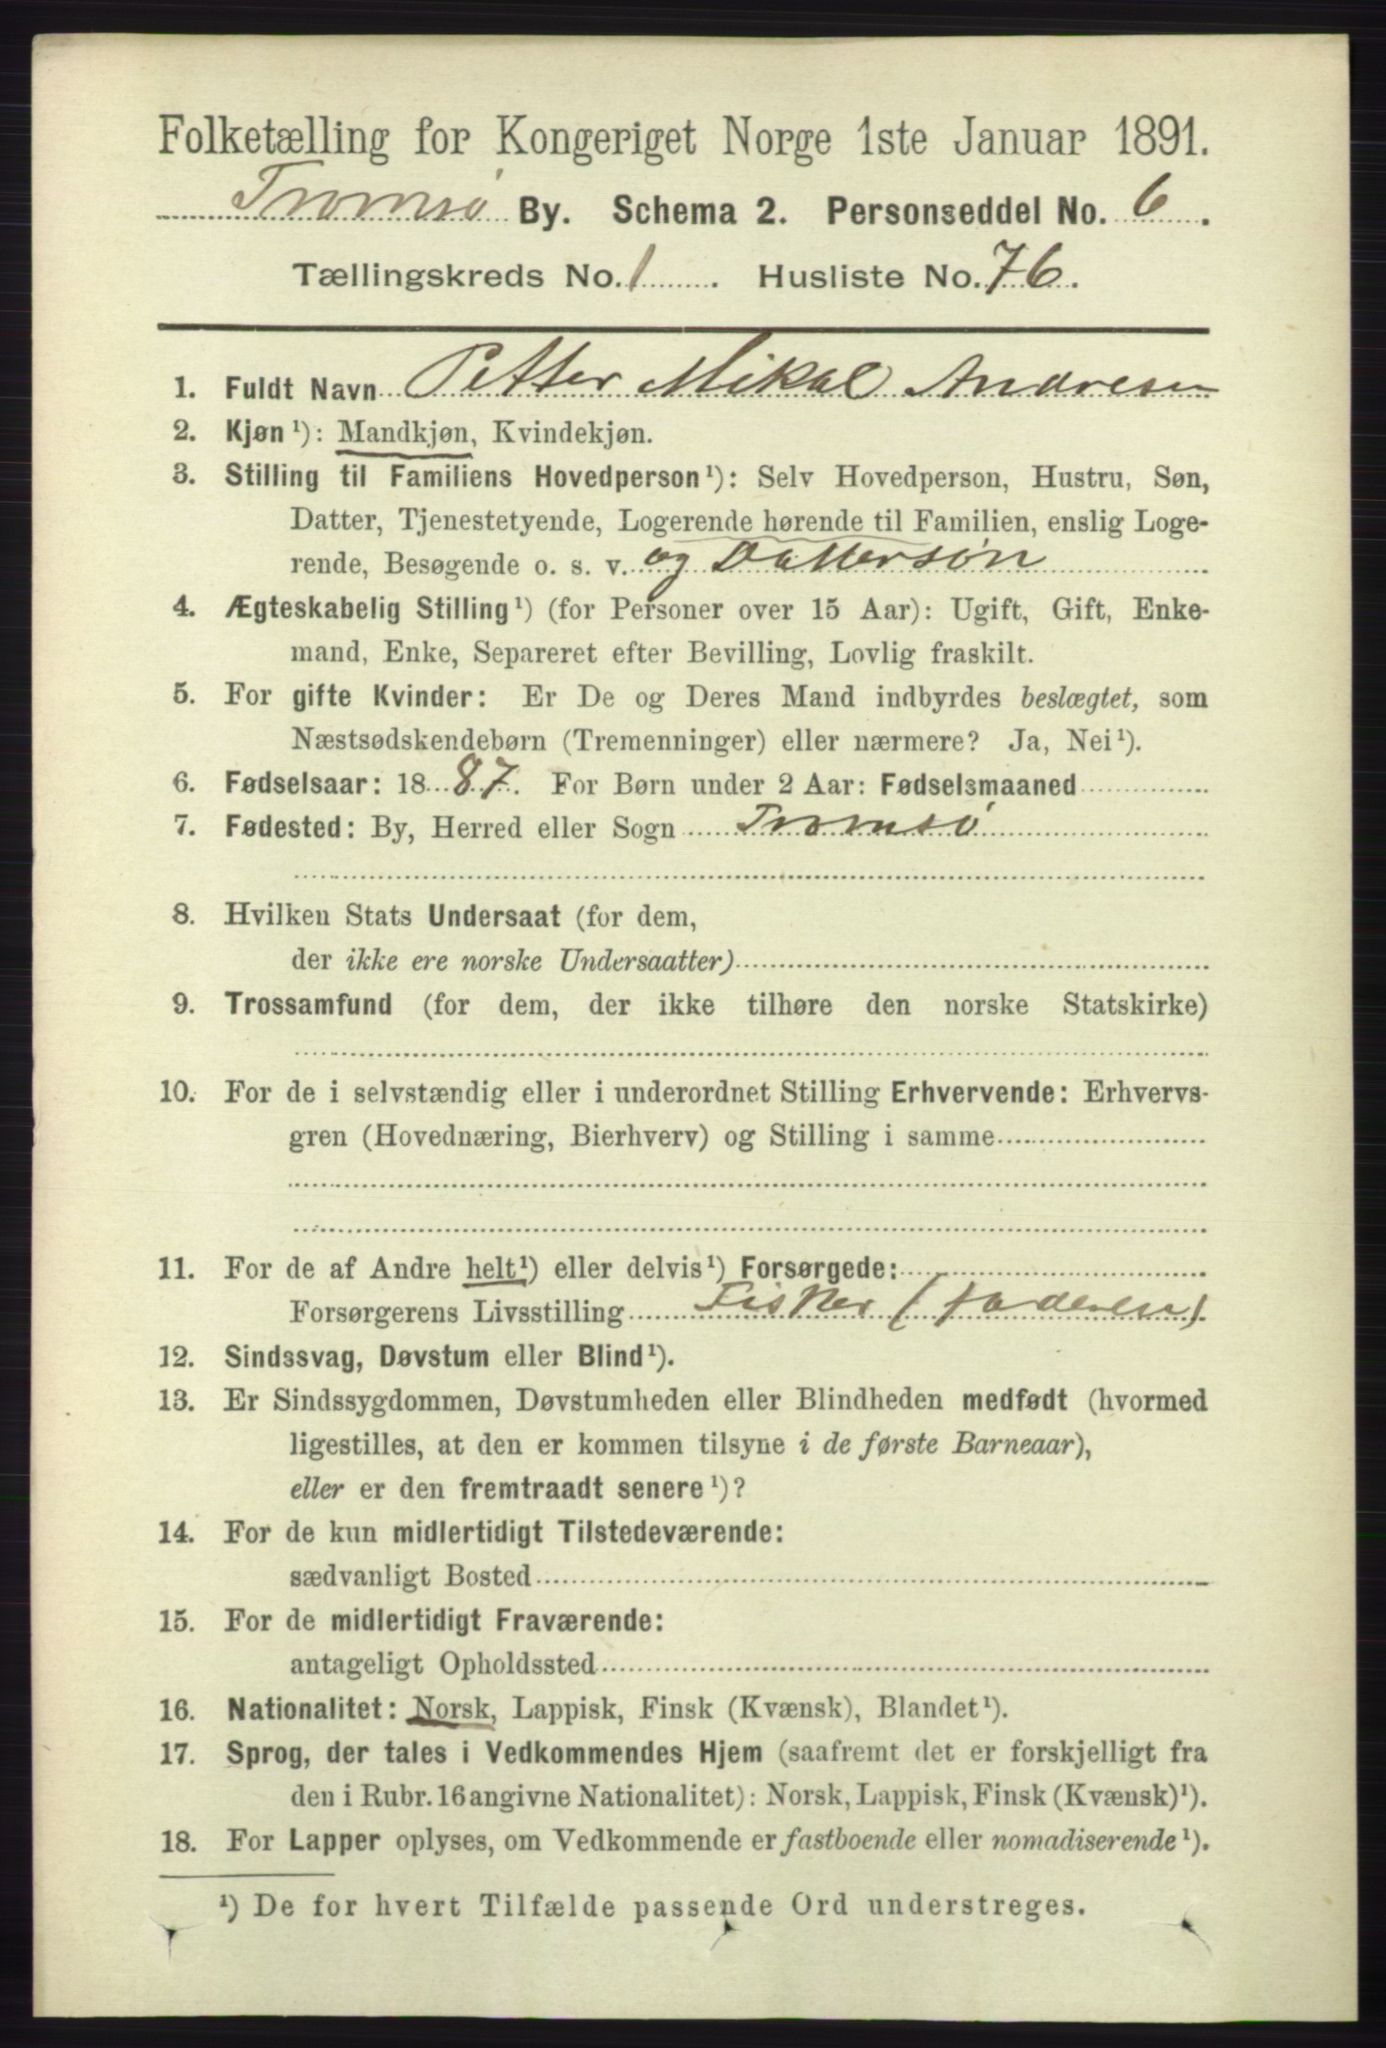 Folketælling for Kongeriget Norge 1ste Januar 1891.
Tromsø By. Schema 2. Personseddel No. 6.
Tællingskreds No. 1. Husliste No. 76.
1. Fuldt Navn Petter Mikal Andresen
2. Kjøn¹): Mandkjøn, Kvindekjøn.
3. Stilling til Familiens Hovedperson¹): Selv Hovedperson, Hustru, Søn,
Datter, Tjenestetyende, Logerende hørende til Familien, enslig Loge-
rende, Besøgende o. s. v. og Dattersøn
4. Ægteskabelig Stilling¹) (for Personer over 15 Aar): Ugift, Gift, Enke-
mand, Enke, Separeret efter Bevilling, Lovlig fraskilt.
5. For gifte Kvinder: Er De og Deres Mand indbyrdes beslægtet, som
Næstsødskendebørn (Tremenninger) eller nærmere? Ja, Nei¹).
6. Fødselsaar: 1887. For Børn under 2 Aar: Fødselsmaaned
7. Fødested: By, Herred eller Sogn Tromsø
8. Hvilken Stats Undersaat (for dem,
der ikke ere norske Undersaatter)
9. Trossamfund (for dem, der ikke tilhøre den norske Statskirke)
10. For de i selvstændig eller i underordnet Stilling Erhvervende: Erhvervs-
gren (Hovednæring, Bierhverv) og Stilling i samme
11. For de af Andre helt¹) eller delvis¹) Forsørgede:
Forsørgerens Livsstilling Fisker (faderen).
12. Sindssvag, Døvstum eller Blind¹).
13. Er Sindssygdommen, Døvstumheden eller Blindheden medfødt (hvormed
ligestilles, at den er kommen tilsyne i de første Barneaar),
eller er den fremtraadt senere¹)?
14. For de kun midlertidigt Tilstedeværende:
sædvanligt Bosted
15. For de midlertidigt Fraværende:
antageligt Opholdssted
16. Nationalitet: Norsk, Lappisk, Finsk (Kvænsk), Blandet¹).
17. Sprog, der tales i Vedkommendes Hjem (saafremt det er forskjelligt fra
den i Rubr. 16 angivne Nationalitet): Norsk, Lappisk, Finsk (Kvænsk)¹).
18. For Lapper oplyses, om Vedkommende er fastboende eller nomadiserende¹).
¹) De for hvert Tilfælde passende Ord understreges.